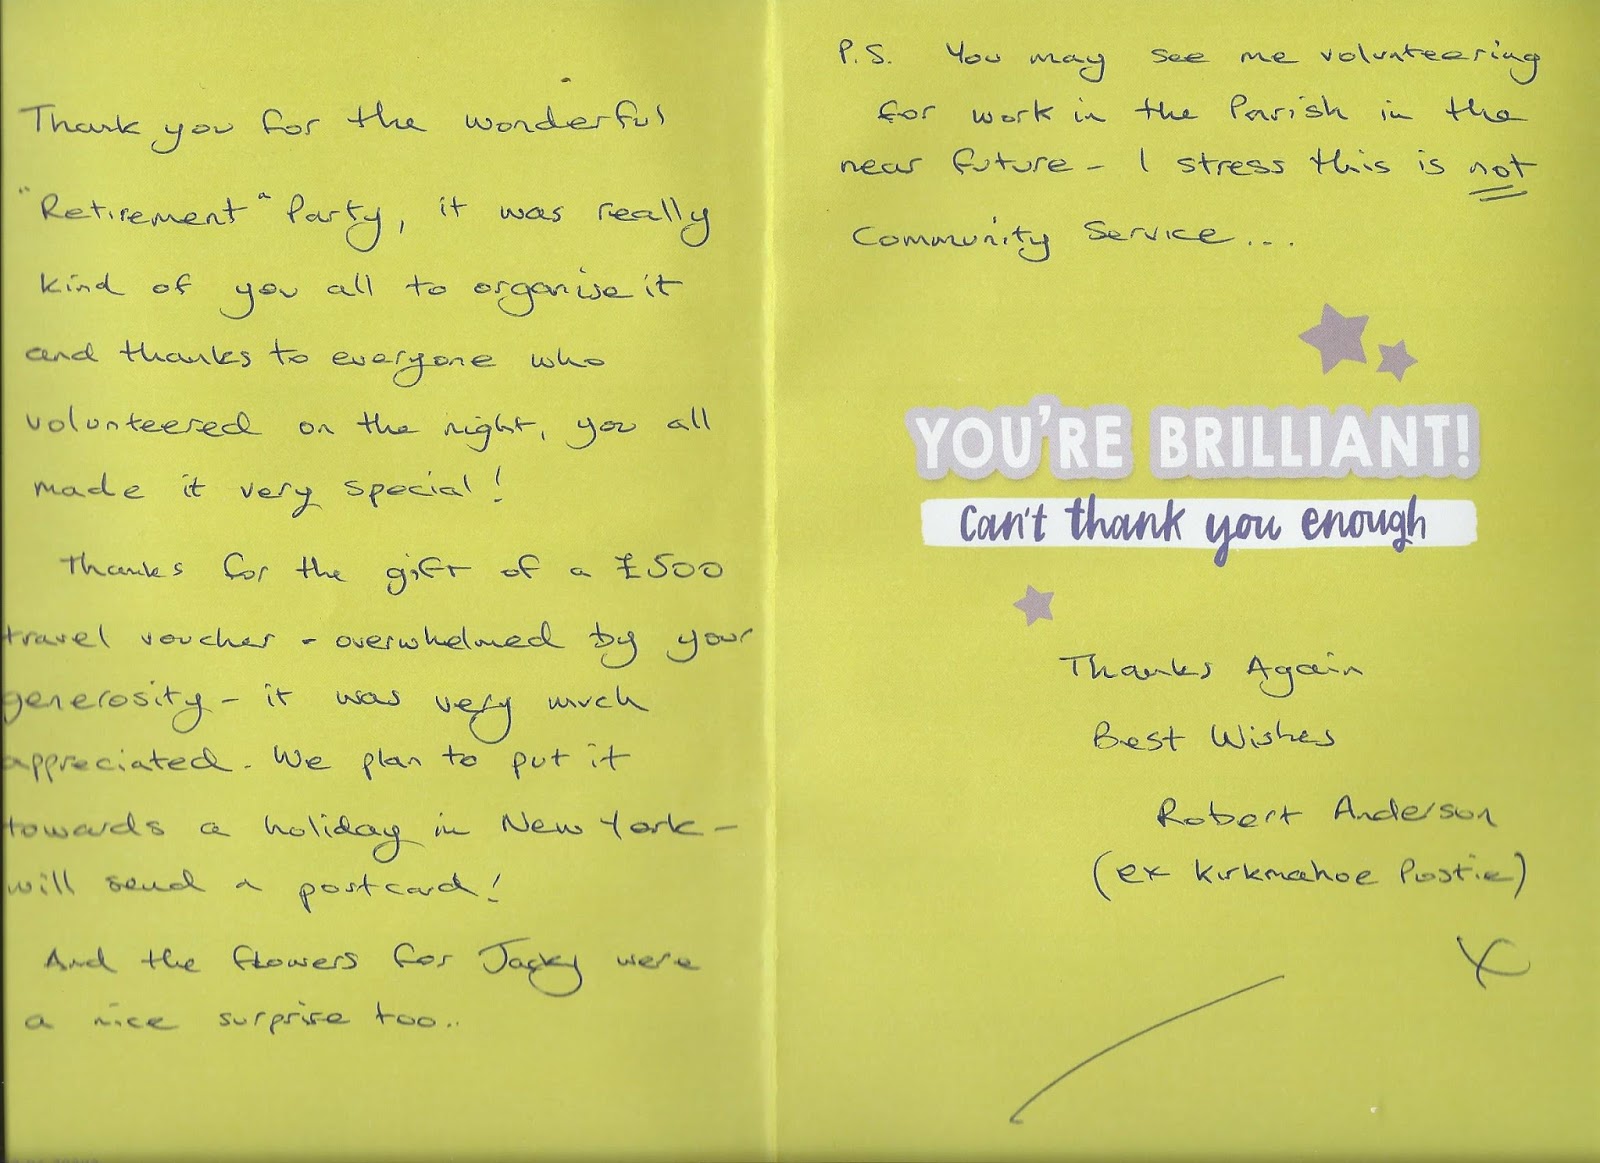 Thank you for the wonderful
"Retirement" Party, it was really
kind of you all to organise it
and thanks to everyone who
volunteered on the night, you all
made it very special!
Thanks for the gift of a £500
travel voucher - overwhelmed by your
generosity - it was very much
appreciated. We plan to put it
towards a holiday in New York -
will send a postcard!
And the flowers for Jacky were
a nice surprise too..
P.S. You may see me volunteering
for work in the Parish in the
near future - I stress this is not
Community Service...
YOU'RE BRILLIANT!
Can't thank you enough
Thanks Again
Best Wishes
Robert Anderson
(ex Kirkmahoe Postie)
X